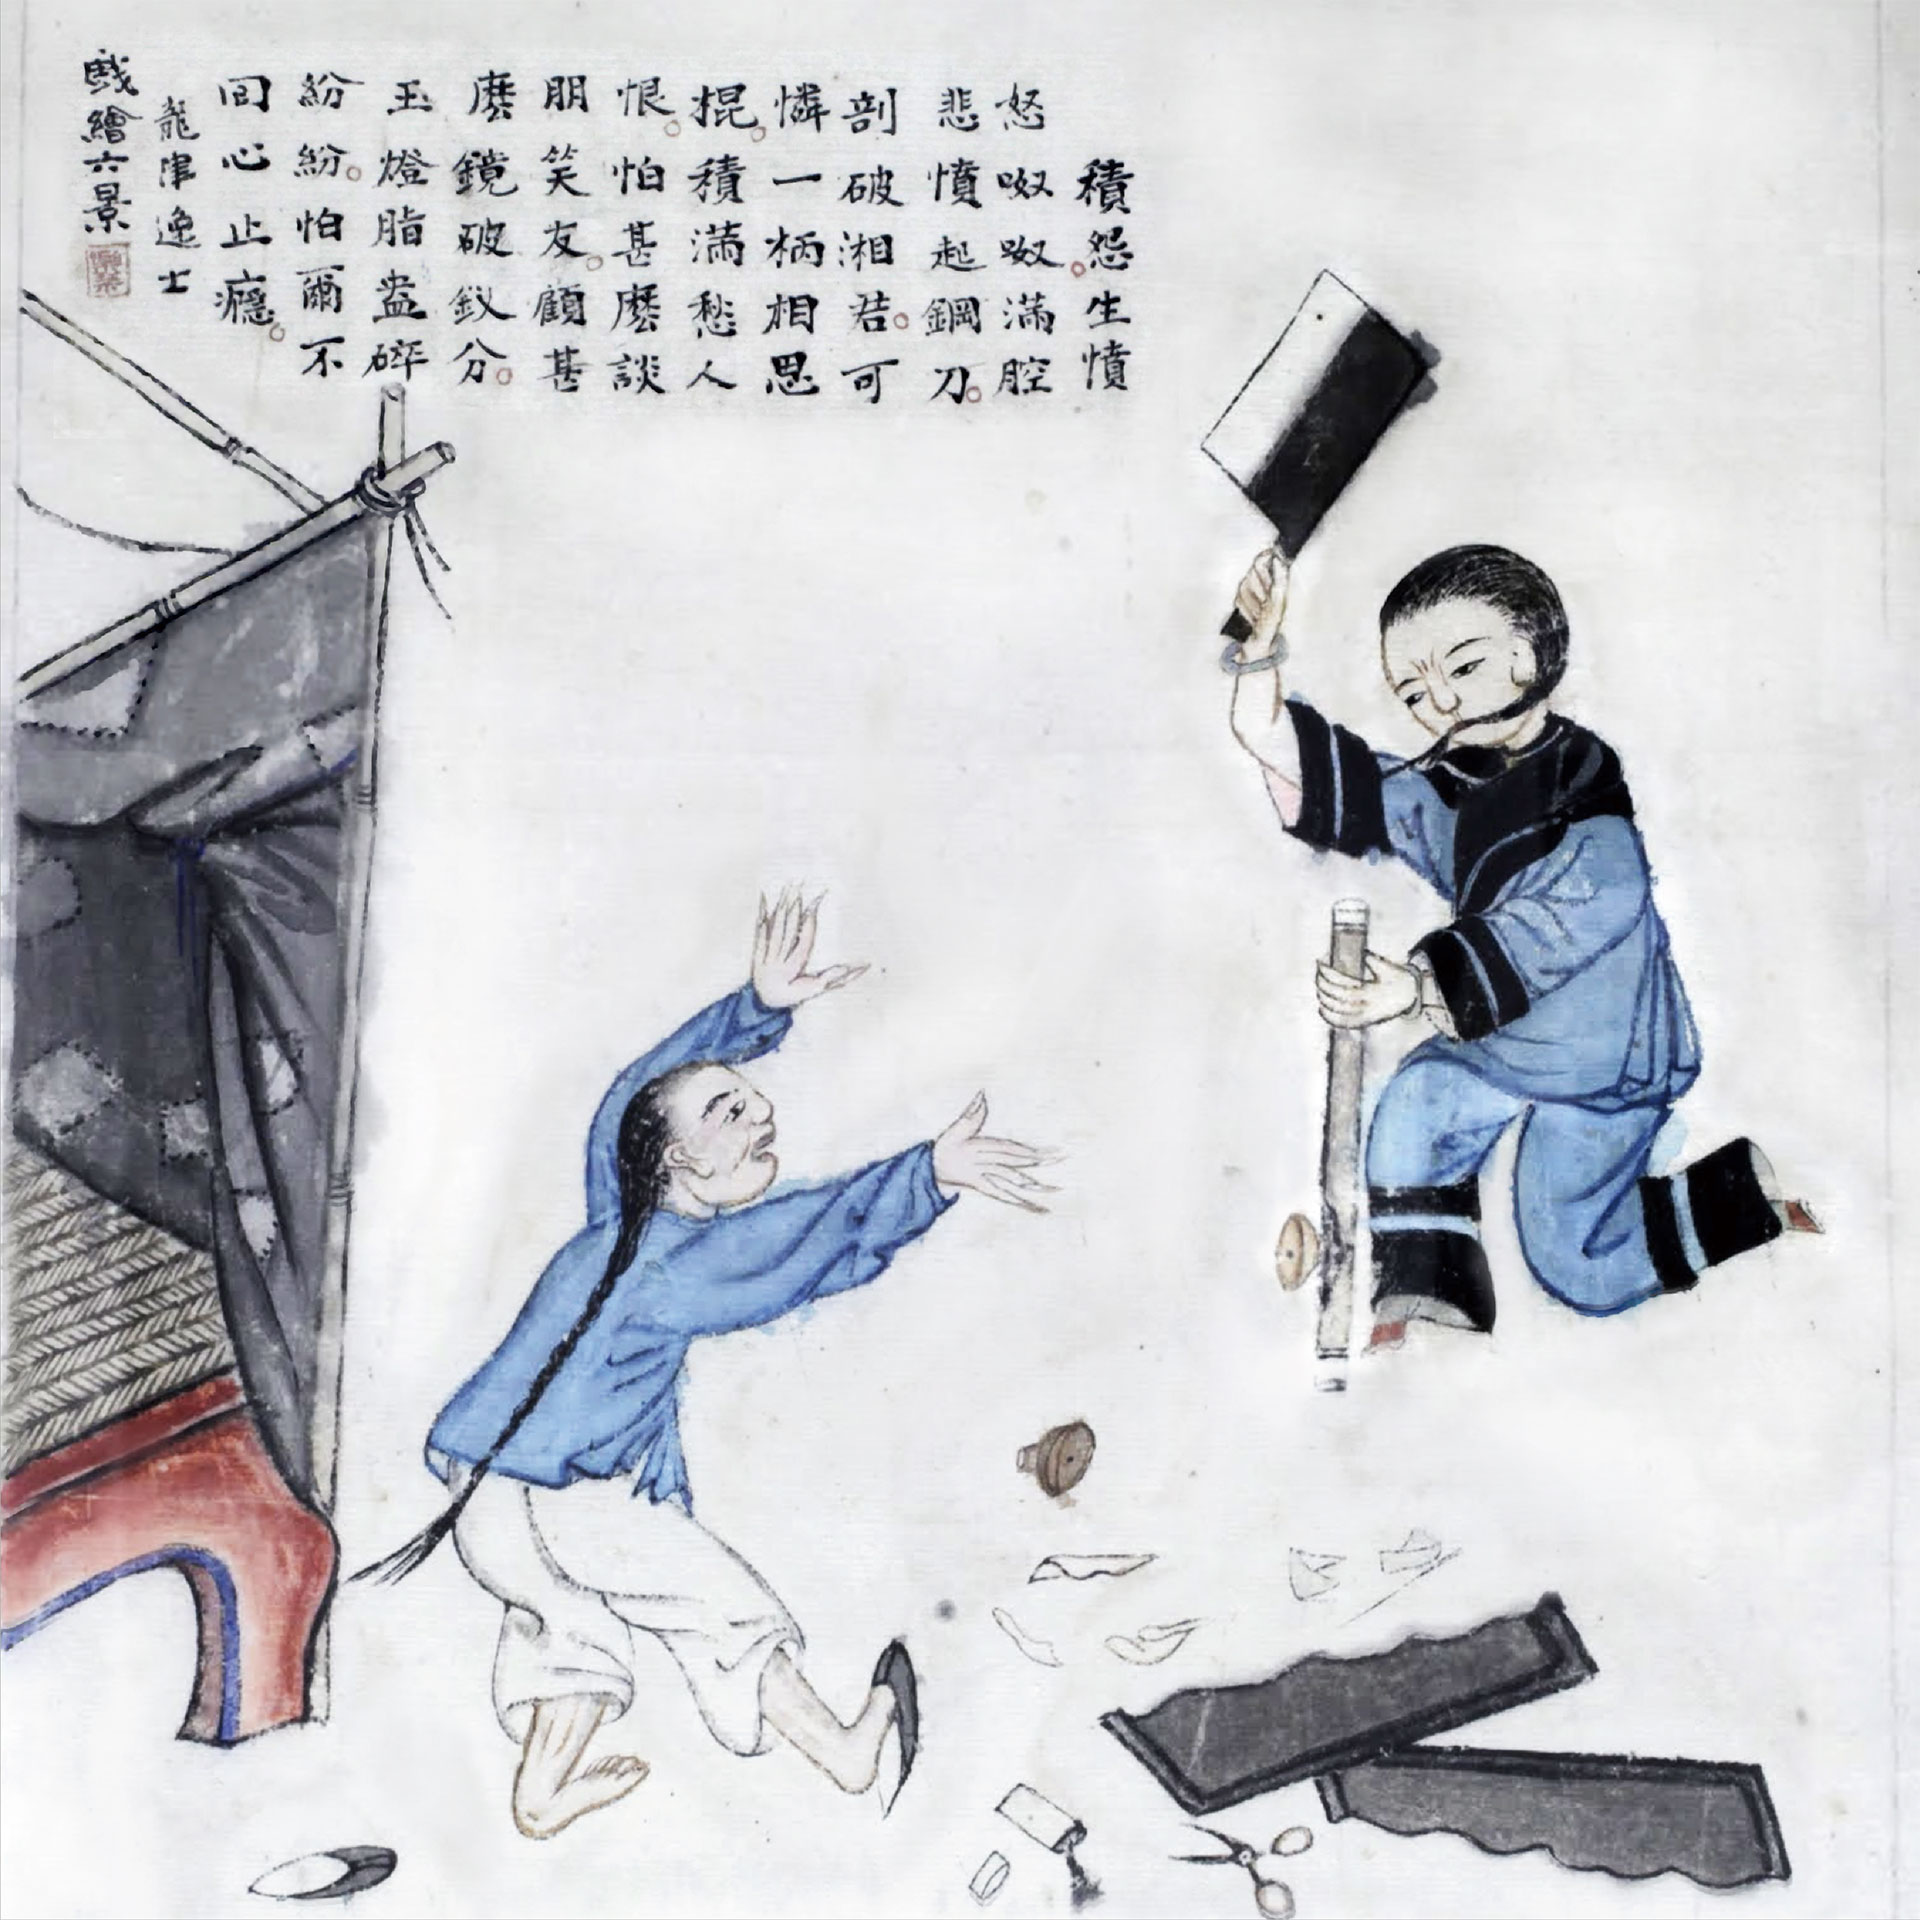 積怨生憤
怒呶呶。滿腔
悲憤起鋼刀。
剖破湘君。可
憐一柄相思
棍。積滿愁人
恨。怕甚麼談
朋笑友。顧甚
麼鏡破釵分。
玉燈脂盎碎
紛紛。怕爾不
回心止癮。
龍津逸士
戲繪六景